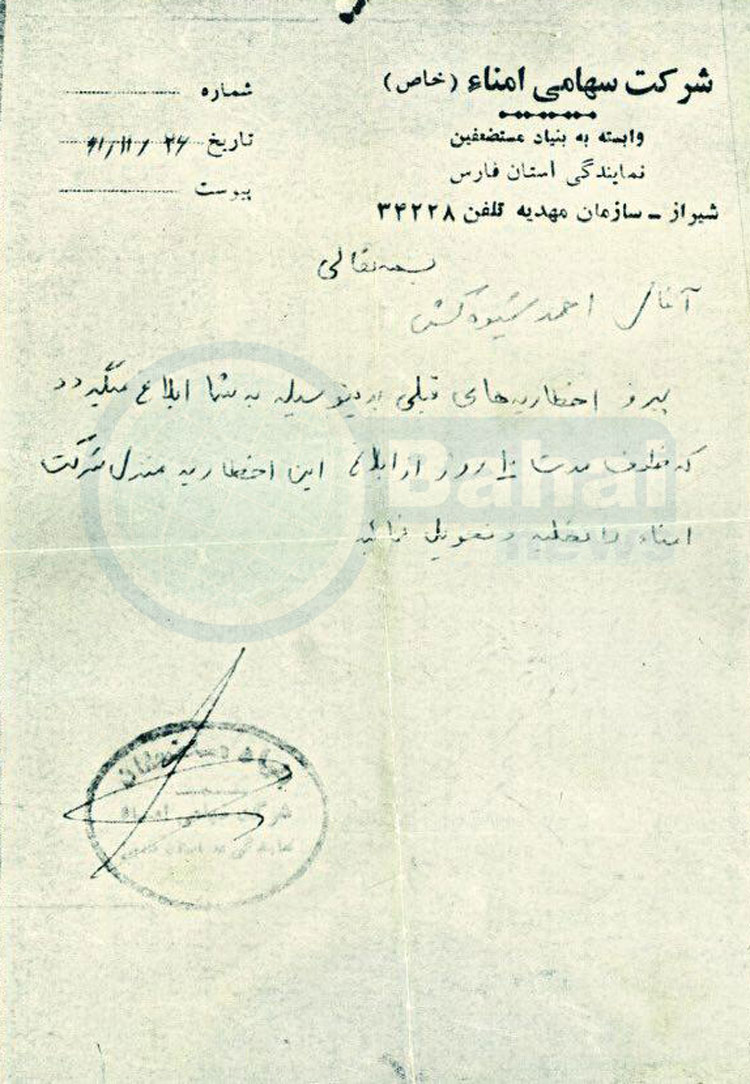 شرکت سهامی امناء (خاص)
وابسته به بنیاد مستضعفین
نمایندگی استان فارس
شیراز ـ سازمان مهدیه تلفن ۳۴۲۲۸
شماره
تاریخ ۶۱/۱۱/۲۶
پیوست
بسمه تعالی
آقای احمد شیوه کش
پیرو اخطاریه های قبلی بدینوسیله به شما ابلاغ میگردد
که ظرف مدت روز از ابلاغ این اخطاریه منزل شرکت
امناء را تخلیه و تحویل نمائید
Bahai
news
بنیاد مستضعفان
شرکت سهامی امناء
نمایندگی در استان فارس